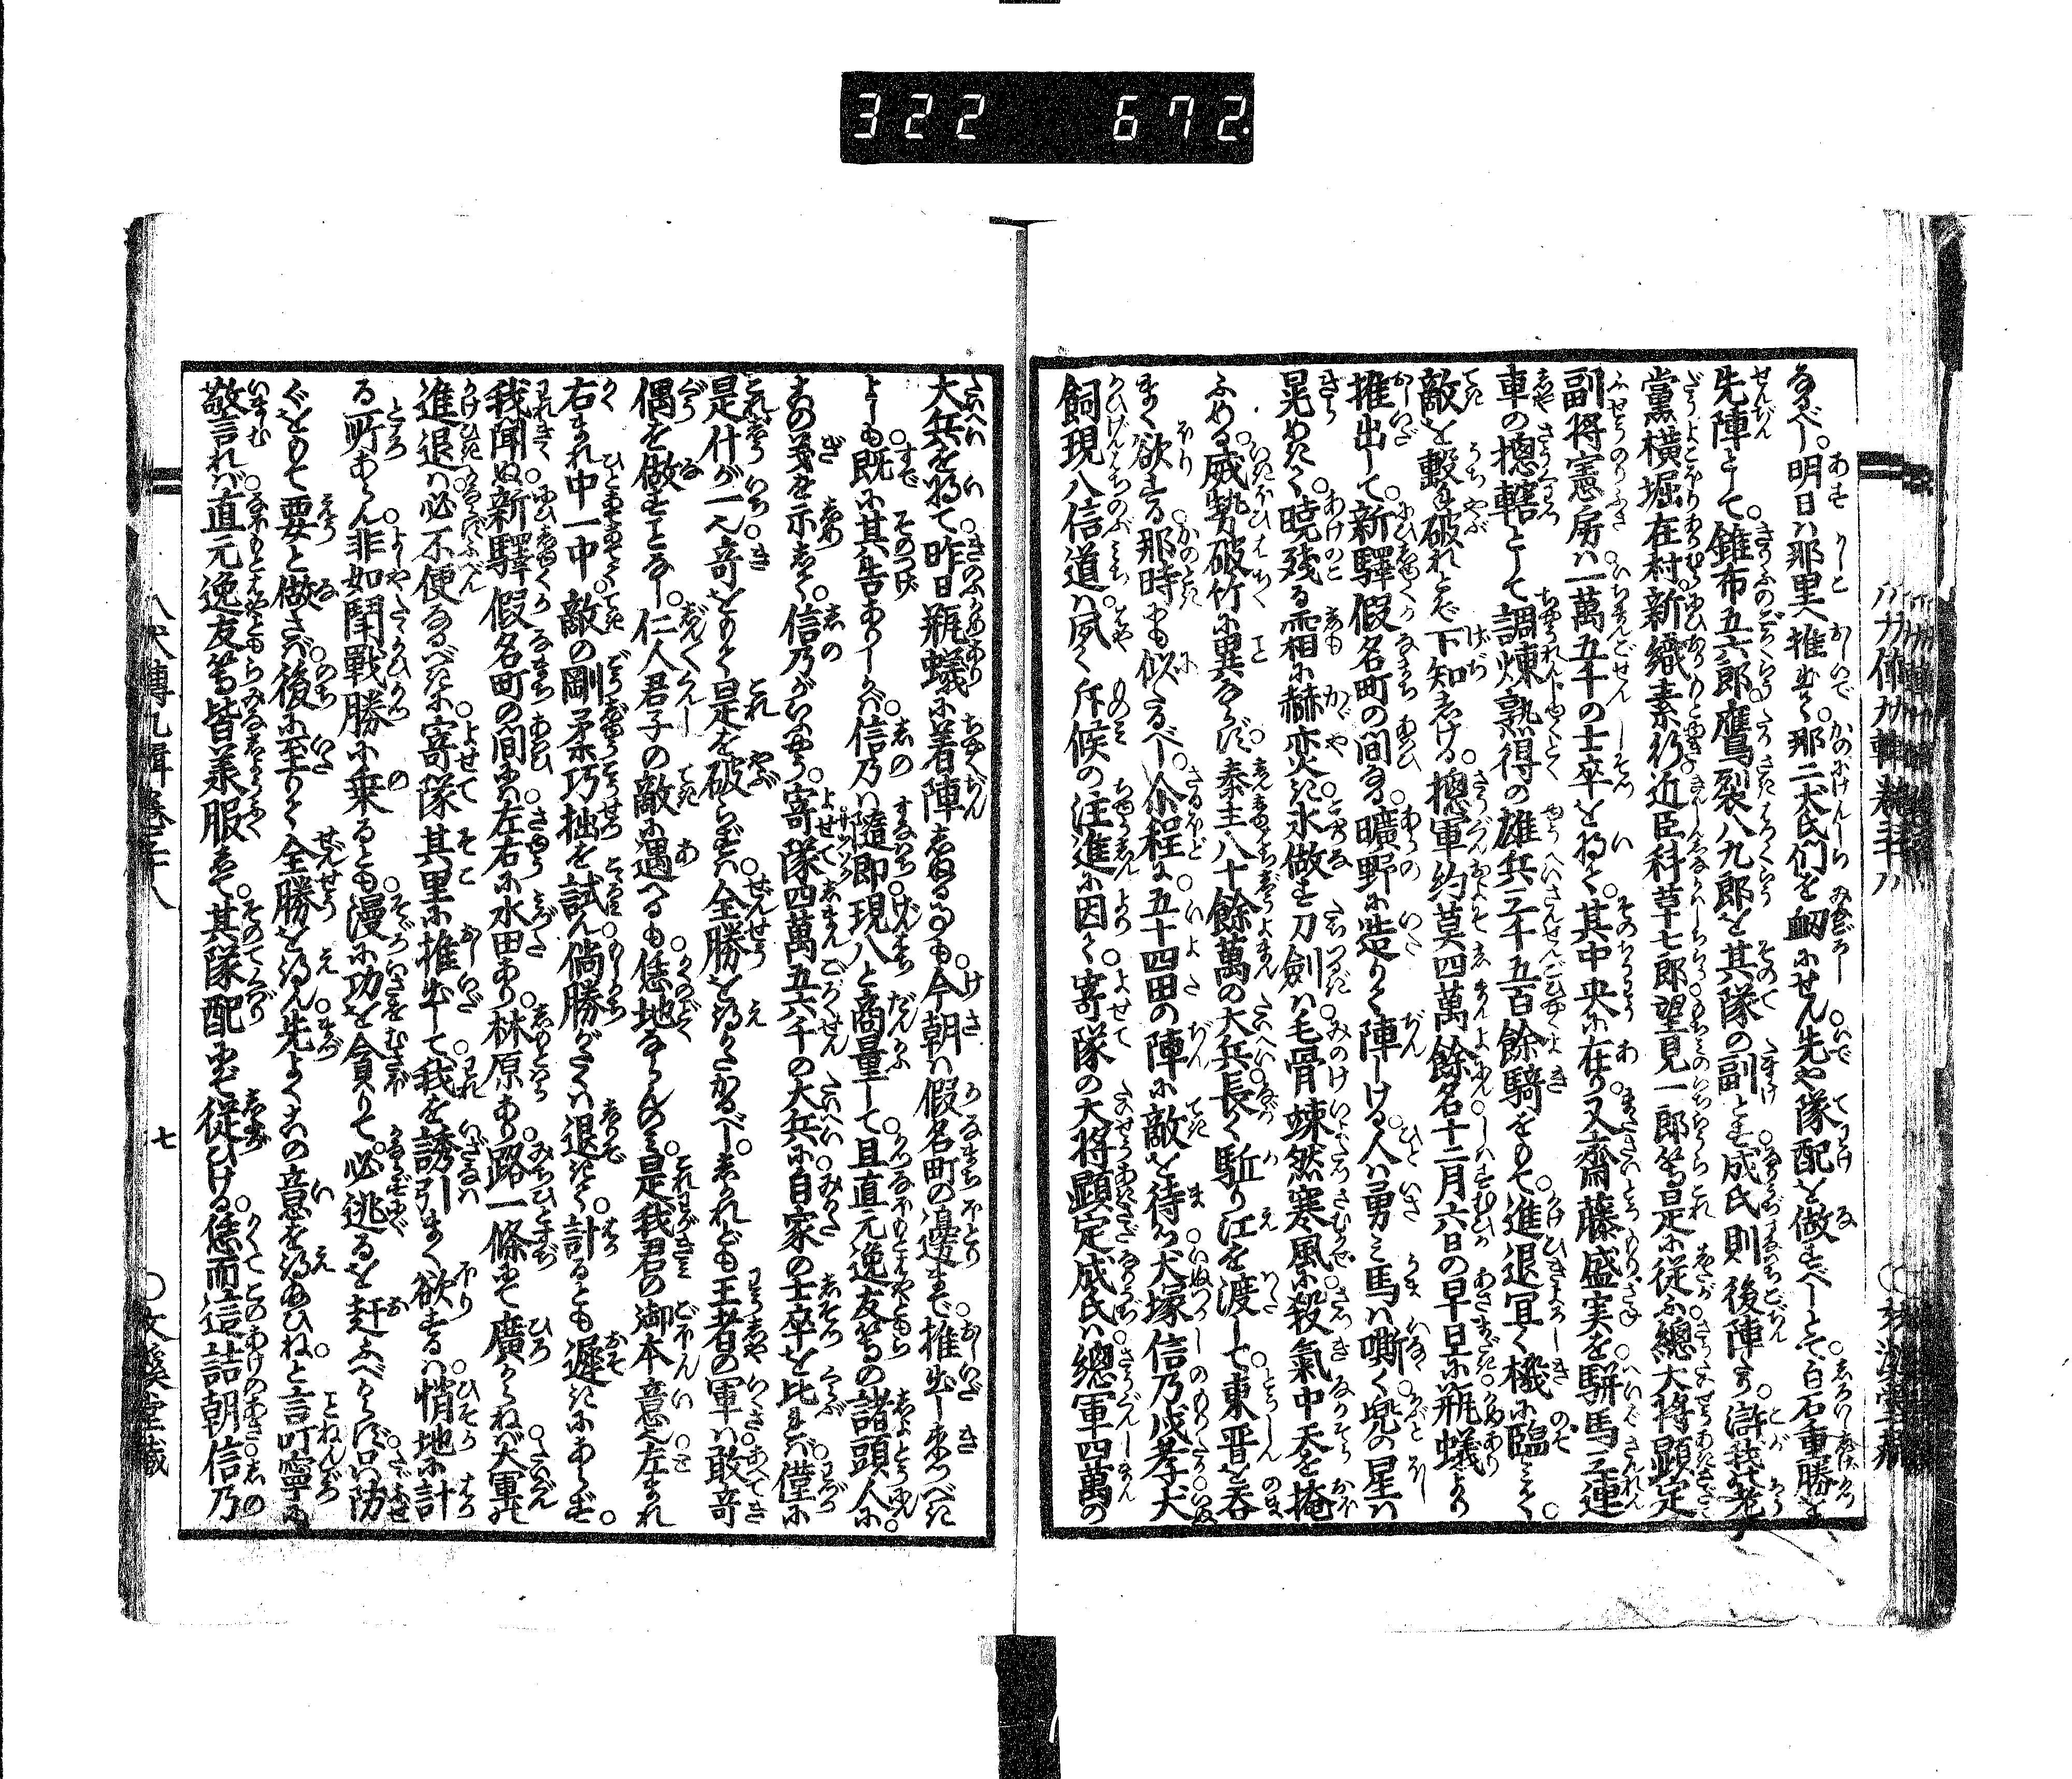 322 672
なるべし。明日は那里へ推出て。那二犬氏們を衂にせん。先や隊配を做すべしとて。白石重勝を
先陣として。錐布五六郎。鷹裂八九郎を其隊の副とす。成氏則後陣たり。許我老
黨横堀在村。新織素行。近臣科革七郎。望見一郎等是に従ふ。總大将顕定
副将憲房は一萬五千の士卒を将て。其中央に在り。又齋藤盛実を駢馬三連
車の摠轄として。調煉熟得の雄兵三千五百餘騎をもて。進退宜く機に臨みて。
敵を轂き破れとぞ下知しける。摠軍約莫四萬餘名。十二月六日の早旦に瓶蟻より
推出して。新驛假名町の間なる曠野に造りて陣しける。人は勇み馬は嘶く。兜の星は
晃めきて。暁残る霜に赫変き。氷做す刀剣は毛骨竦然寒風に。殺氣中天を掩
ふめる。威勢破竹に異ならず。秦主八十餘萬の大兵。長く駈り江を渡して。東晋を呑
まく欲する。那時にも似たるべし。介程に五十四田の陣に敵を待つ。犬塚信乃戍孝。犬
飼現八信道は。夙く斥候の注進に因て。寄隊の大将顕定成氏は。總軍四萬の
大兵を将て。昨日瓶蟻に着陣しぬる事も。今朝は假名町の邊まで。推出し来つべき
よしも。既に其告ありしかば。信乃は隨即。現八と商量して。且直元逸友等の諸頭人に。
この義を示して。信乃がいふやう。寄隊四萬五六千の大兵に。自家の士卒を比すれば。僅に
是什が一へ。奇をもて是を破らずは。全勝を得かたかるべし。しかれども王者の軍は。敢奇
偶を做すことなし。仁人君子の敵に遇へるも。恁地ならんのみ。是我君の御本意へ。左まれ
右まれ。中一中。敵の剛柔巧拙を試ん。倘勝がたくは退きて。計るとも遅きにあらず。
我聞ぬ。新驛假名町の間には。左右に水田あり。林原あり。路一條にて廣からねば。大軍の
進退は必不便なるべきに。寄隊其里に推出して。我を誘引まく欲するは。悄地に計
る所あらん。非如闘戰勝に乗るとも。漫に功を貪りて。必逃るを赶ふべからず。只防
ぐをもて要と做さば。後に至りて全勝を得ん。先よくこの意を得あひねと言叮寧に
警れば。直元逸友等皆美服して。其隊配にぞ従ひける。恁而這詰朝。信乃
八犬傳九輯巻三十八
七
○文溪堂藏